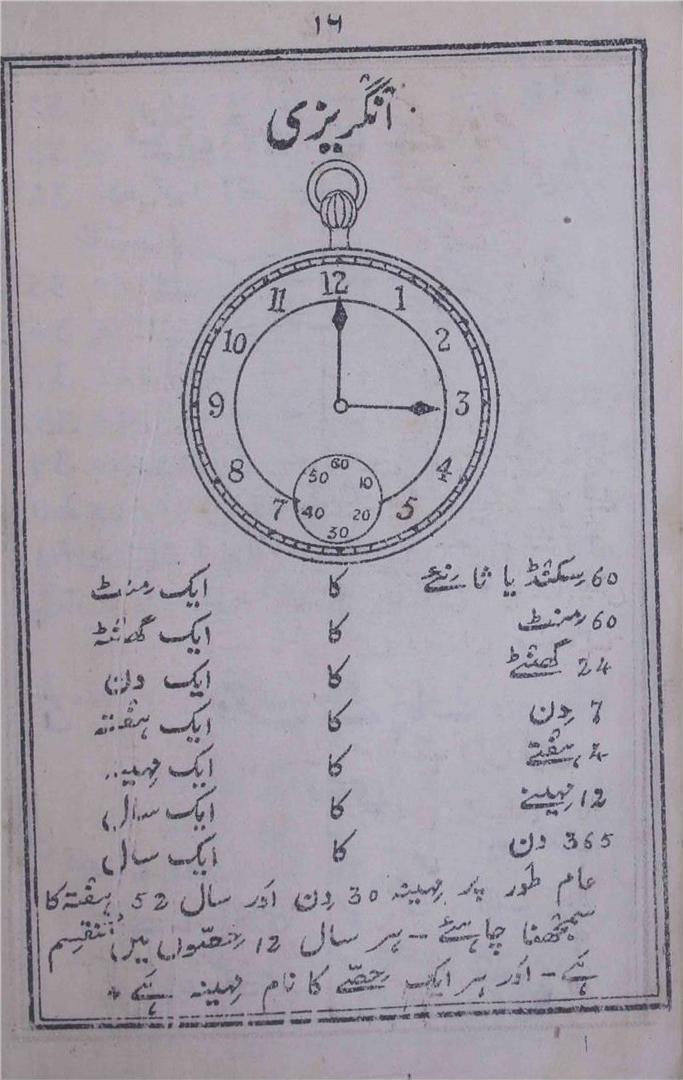 ۱۶
انگریزی
12
11 1
10 2
9 3
8 4
7 5
60
50 10
40 20
30
60 سکنڈ یا ثانئے کا ایک منٹ
60 منٹ کا ایک گھنٹہ
24 گھنٹے کا ایک دن
7 دِن کا ایک ہفتہ
4 ہفتے کا ایک مہینہ
12 مہینے کا ایک سال
365 دن کا ایک سال
عام طور پر مہینہ 30 دِن اَور سال 52 ہفتہ کا
سمجھنا چاہئے - ہر سال 12 حِصّوں میں تقسیم
ہَے - اَور ہر ایک حِصّے کا نام مہینہ ہَے